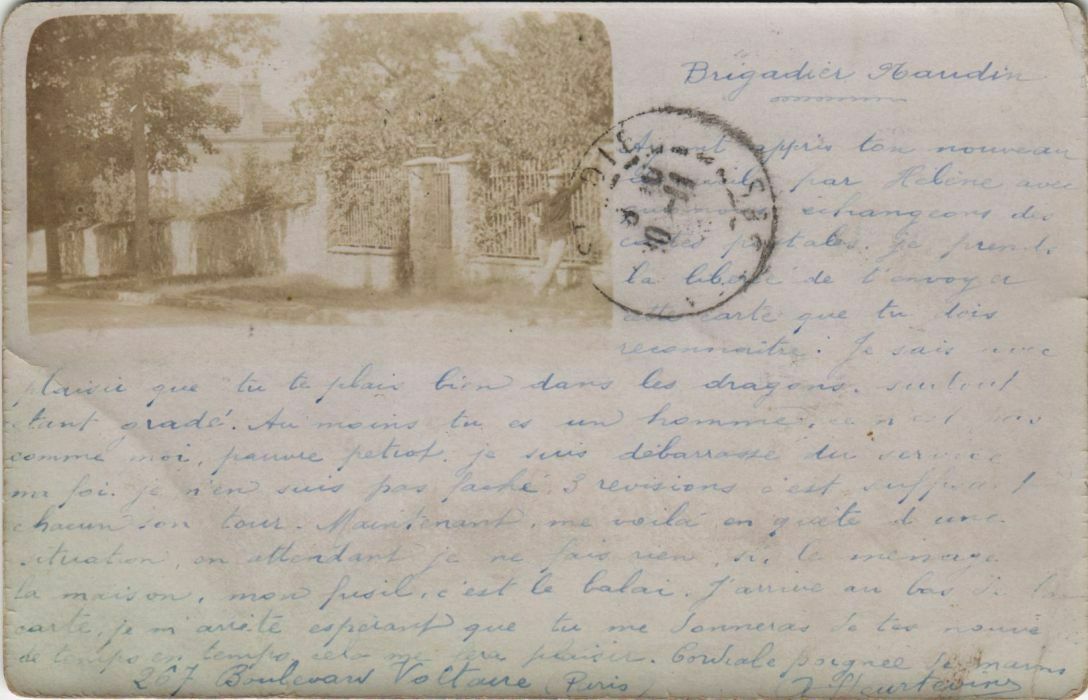 Brigadier Naudin
Ayant appris ton nouveau
par Hélène avec
échangeons des
cartes postales. je prends
la liberté de t'envoyer
cette carte que tu dois
reconnaitre. Je sais avec
plaisir que tu te plais bien dans les dragons. surtout
étant gradé. Au moins tu es un homme, ce n'est pas
comme moi, pauvre petiot. je suis débarrassé du service
ma foi. je n'en suis pas faché, 3 revisions c'est suffisant
chacun son tour. Maintenant, me voilà en quête d'une
situation, en attendant je ne fais rien, si, le ménage
la maison, mon fusil, c'est le balai. J'arrive au bas de la
carte, je m'arrête espérant que tu me donneras de tes nouve
de temps en temps, cela me fera plaisir. Cordiale poignée de mains
267 Boulevard Voltaire (Paris)